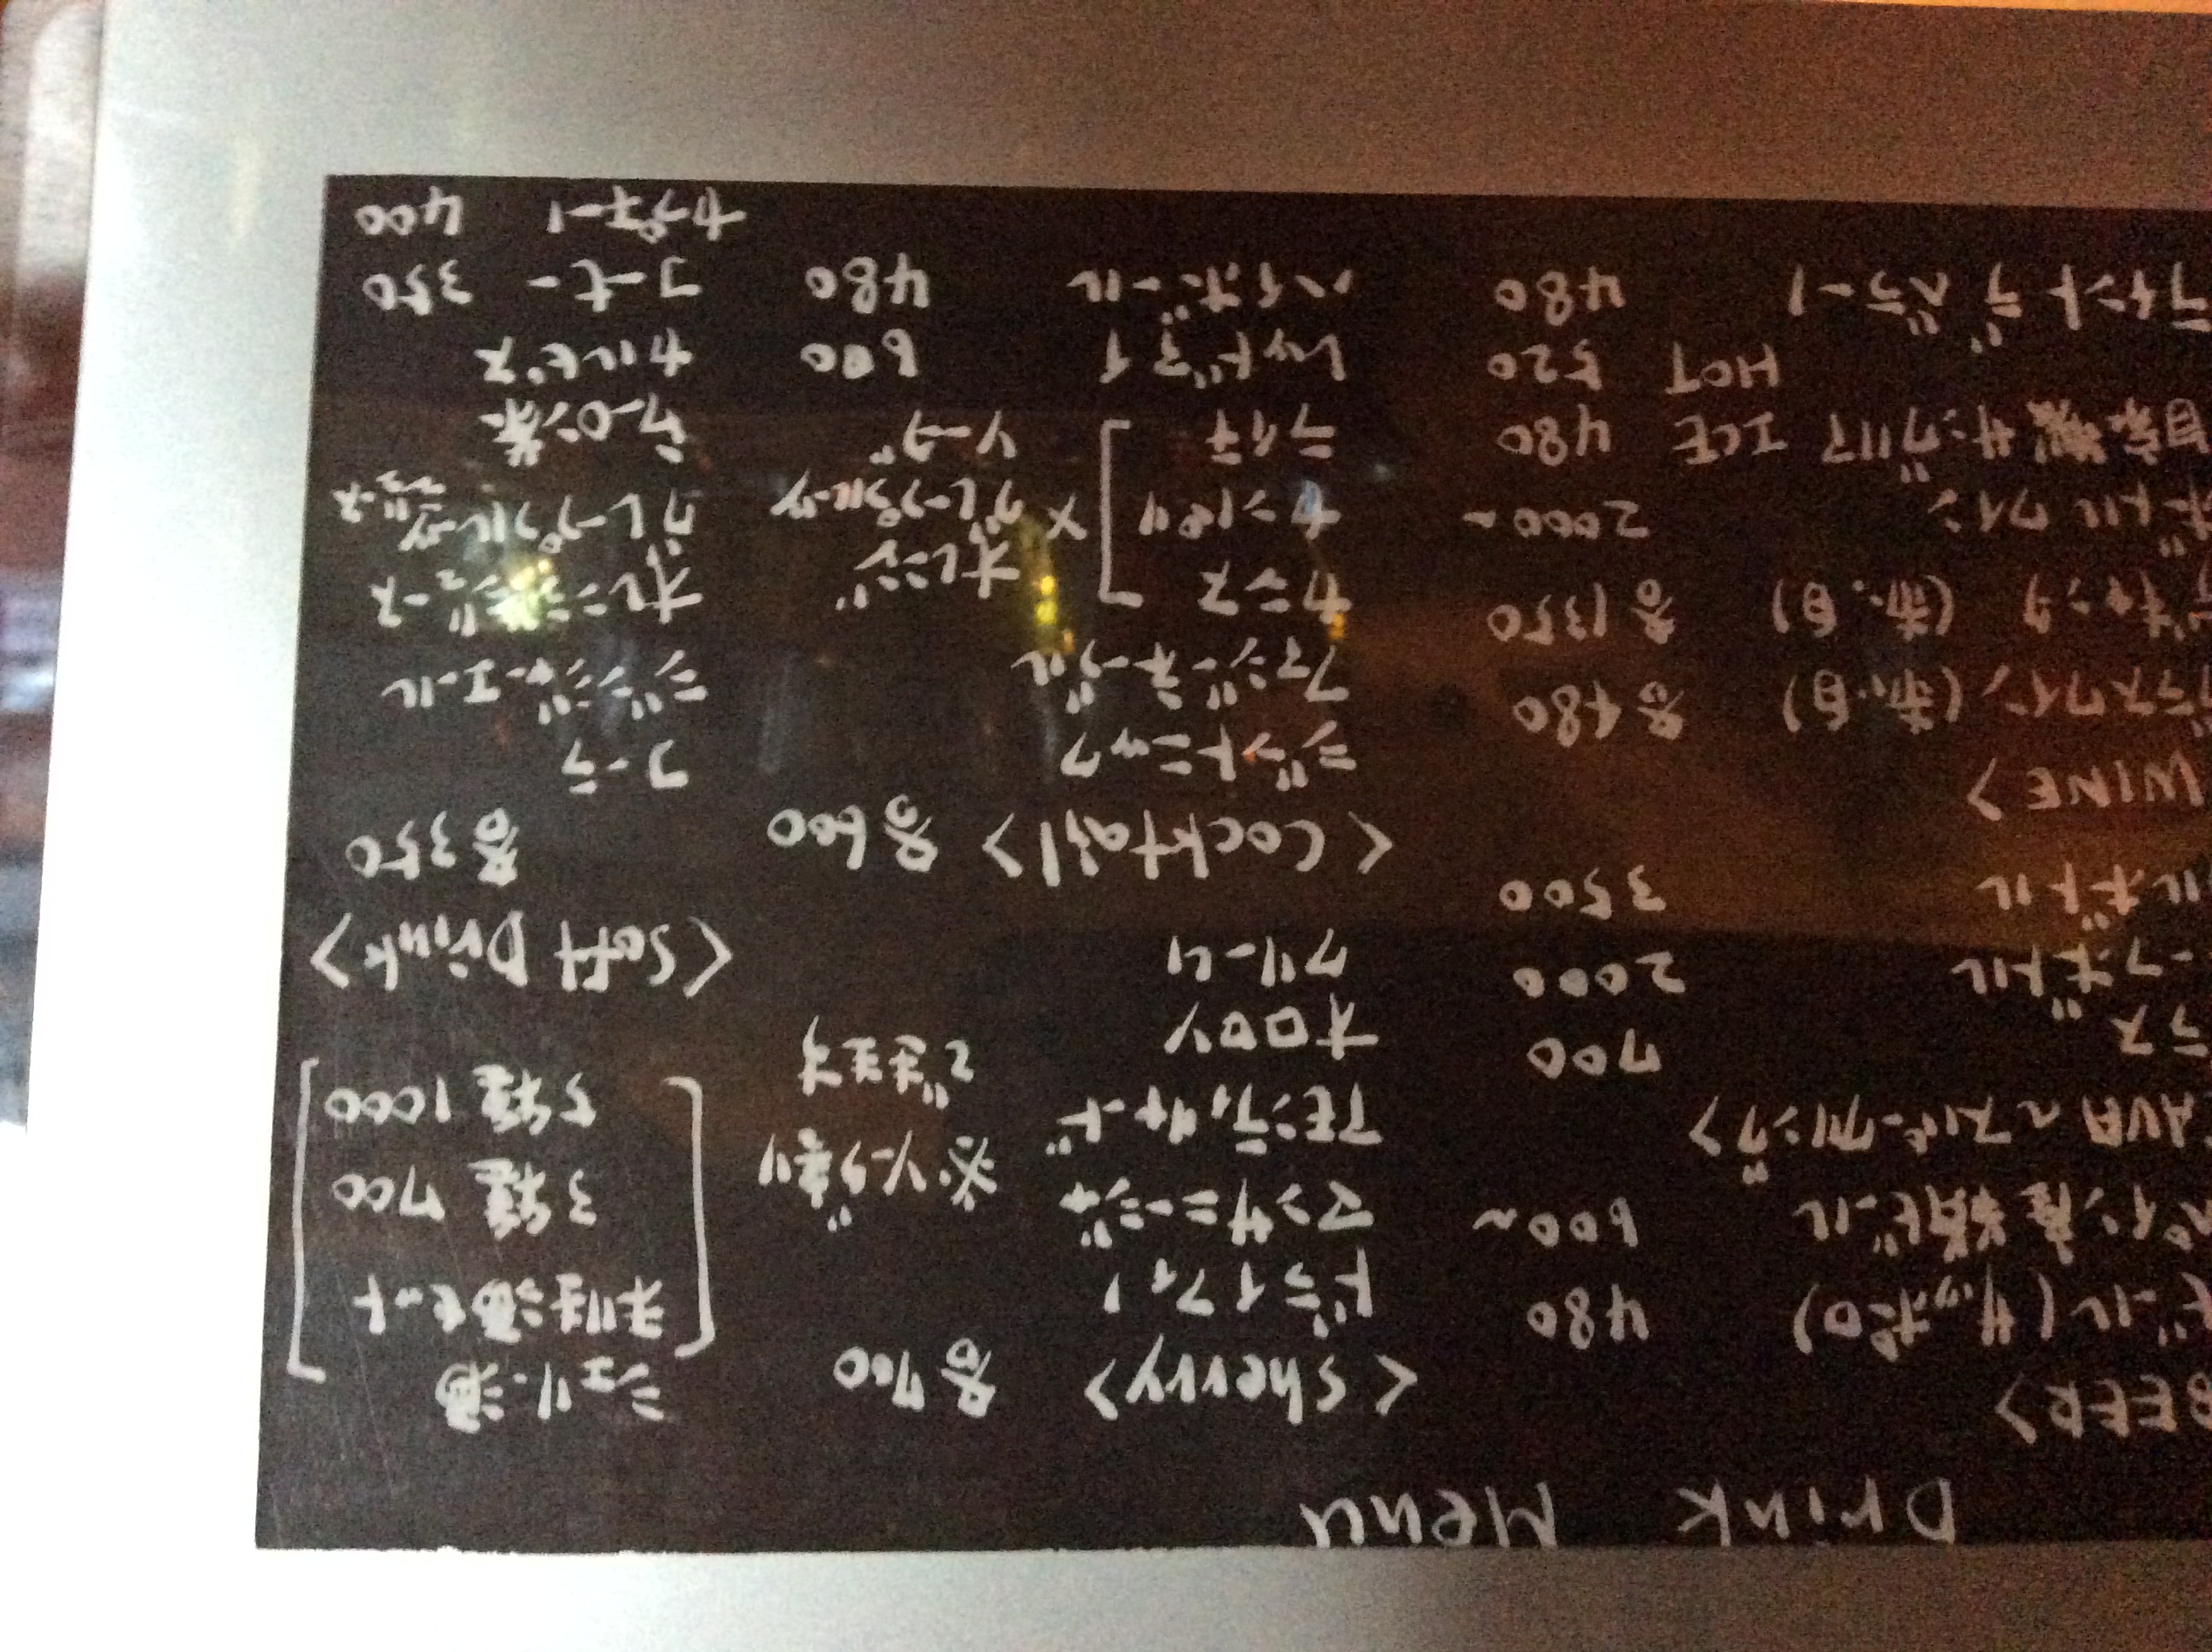 Drink Menu
BEER>
ビール (サッポロ) 480
ペイン産 瓶ビール 600~
AVA ~スパークリング>
ラス 700
ーフボトル 2000
ルボトル 3500
WINE>
ラスワイン (赤・白) 各480
キャンタ (赤・白) 各1350
ボトルワイン 2000~
自家製サングリア ICE 480
HOT 520
ティント デ ベラーノ 480
<Sherry> 各700
ドライフィノ
マンサニージャ ※ソーダ割り
アモンティリャード できます
オロロソ
クリーム
<Cocktail> 各600
ジントニック
ファジーネーブル
カシス オレンジ
カンパリ × グレープフルーツ
ライチ ソーダ
レッドアイ 600
ハイボール 480
シェリー酒
セット
3種 700
5種 1000
<Soft Drink>
各350
コーラ
ジンジャーエール
オレンジジュース
グレープフルーツジュース
ウーロン茶
カルピス
コーヒー 350
カプチーノ 400